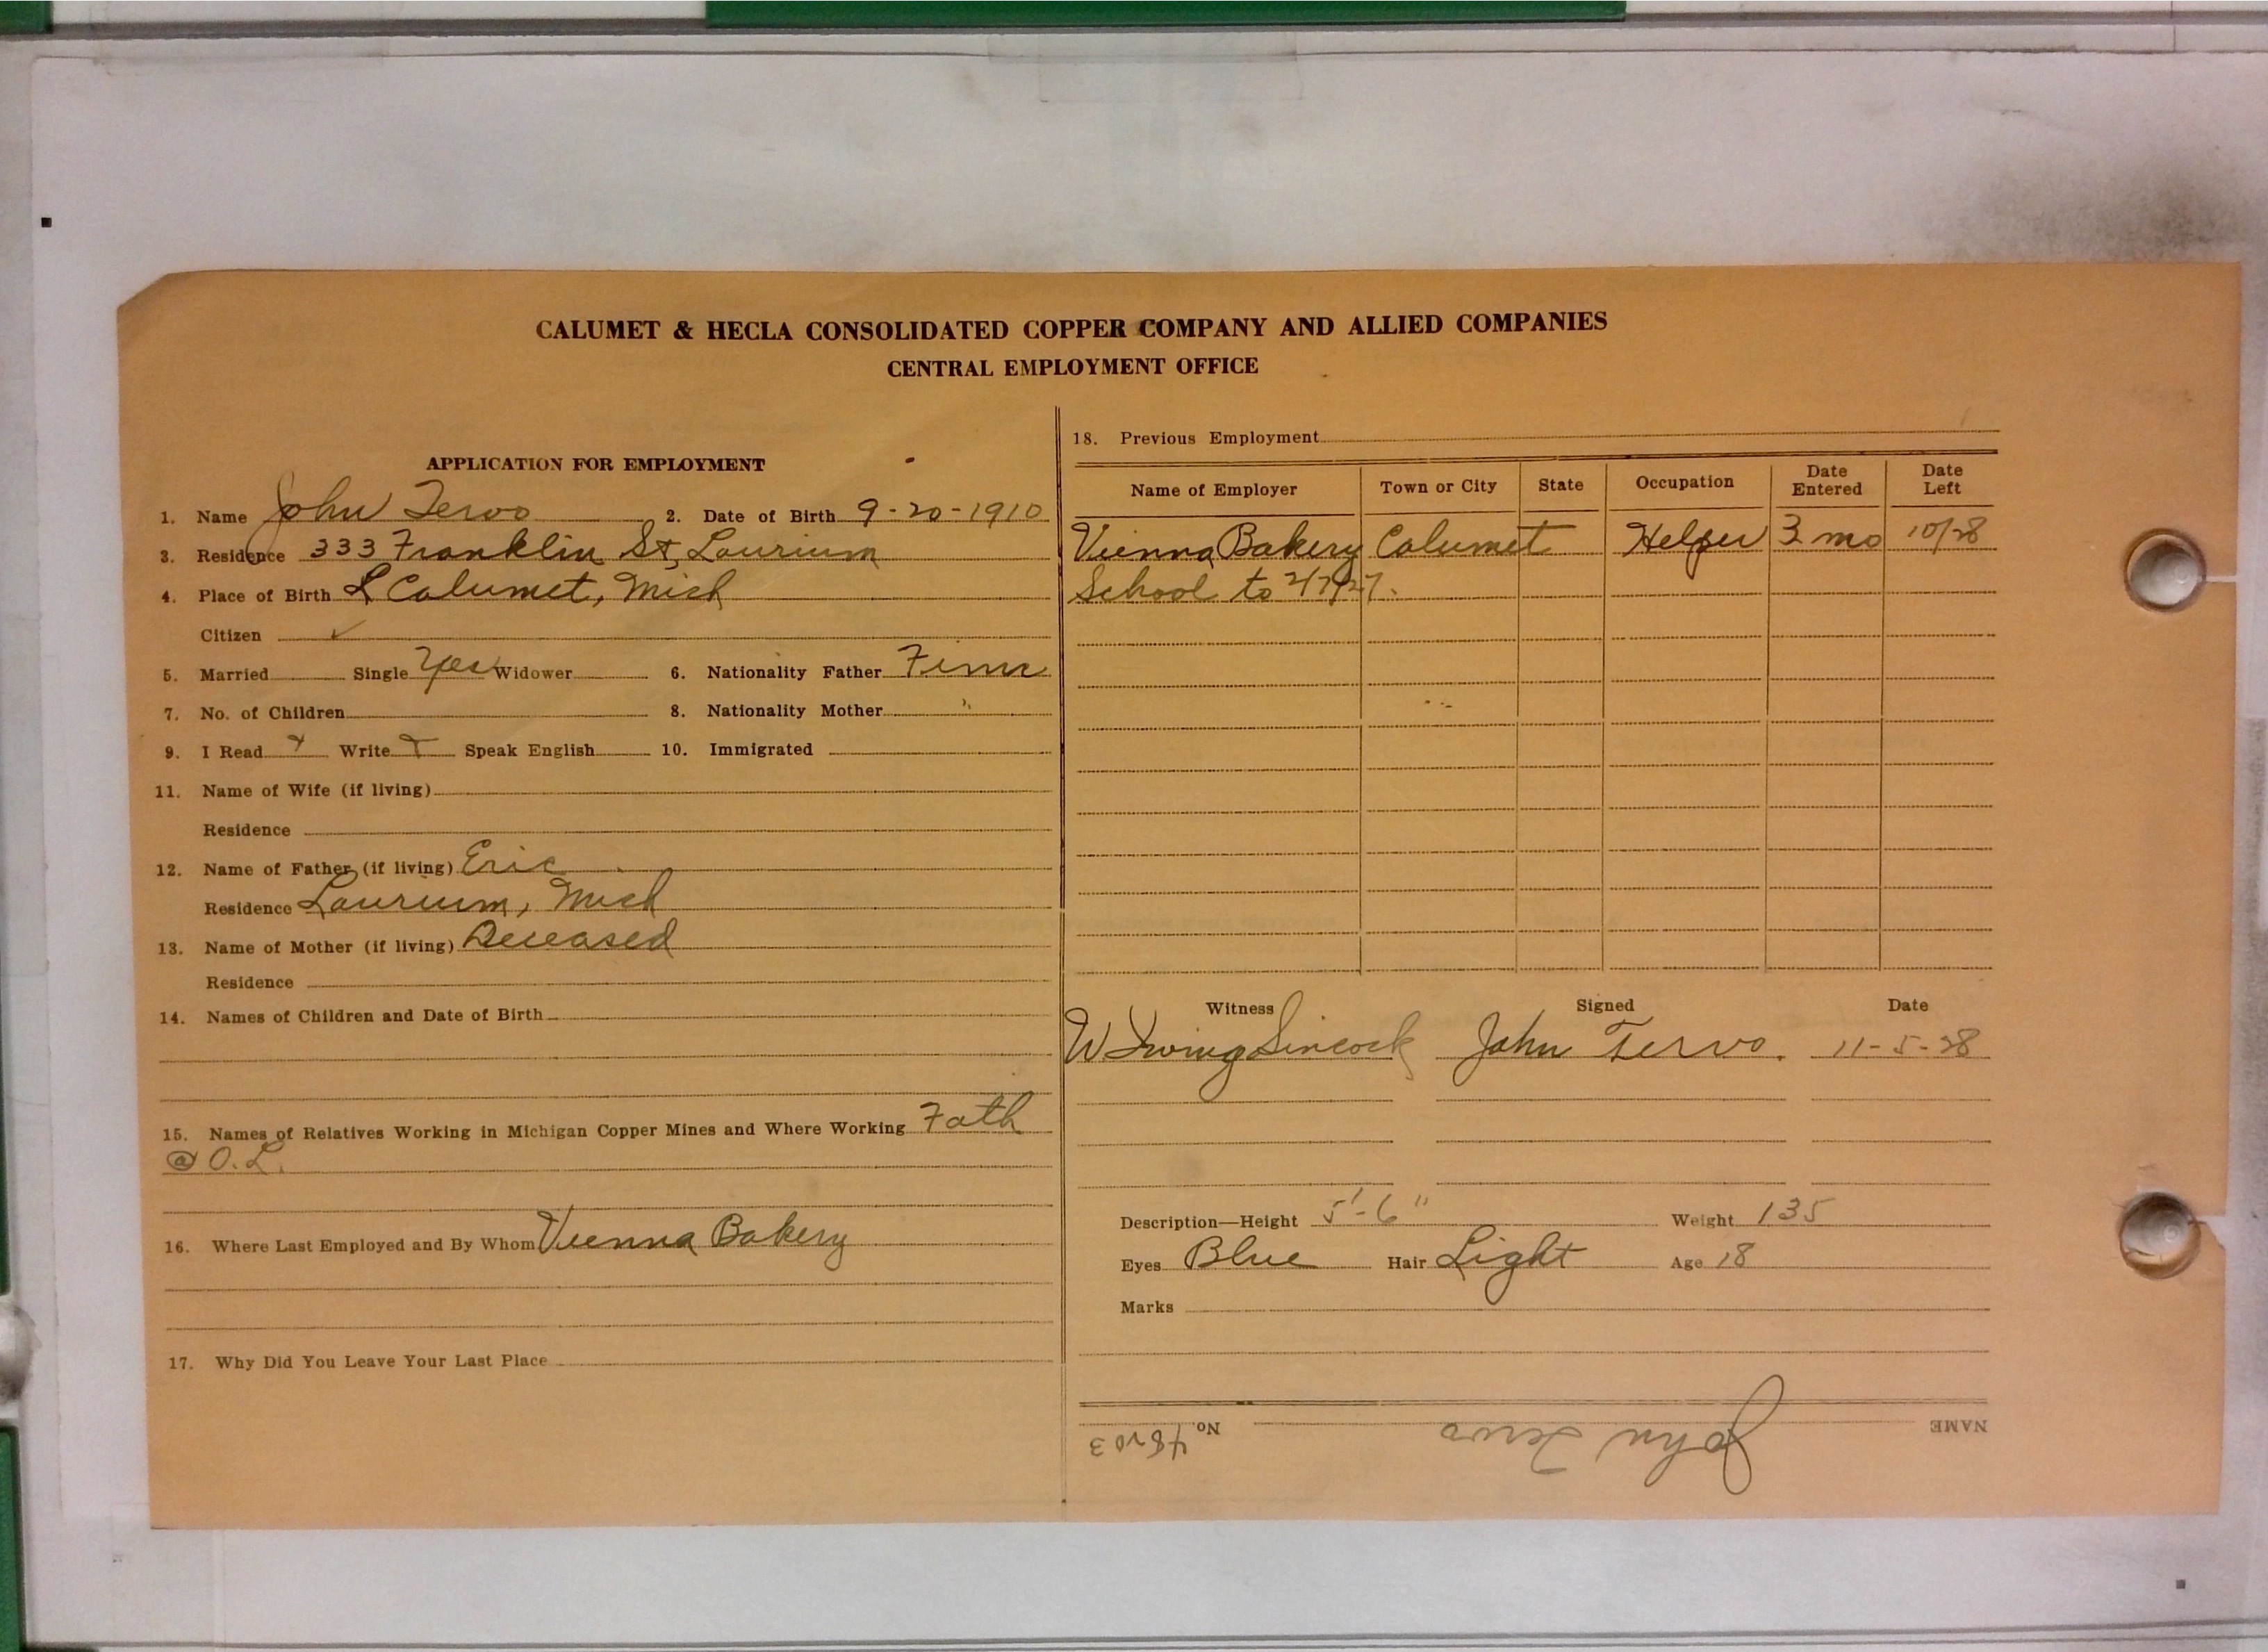 CALUMET & HECLA CONSOLIDATED COPPER COMPANY AND ALLIED COMPANIES
CENTRAL EMPLOYMENT OFFICE
APPLICATION FOR EMPLOYMENT
1. Name John Tervo 2. Date of Birth 9-20-1910
3. Residence 333 Franklin St, Laurium
4. Place of Birth L Calumet, Mich
Citizen ✓
5. Married Single Yes Widower 6. Nationality Father Finn
7. No. of Children 8. Nationality Mother "
9. I Read Write Speak English 10. Immigrated
11. Name of Wife (if living)
Residence
12. Name of Father (if living) Eric
Residence Laurium, Mich
13. Name of Mother (if living) Deceased
Residence
14. Names of Children and Date of Birth
15. Names of Relatives Working in Michigan Copper Mines and Where Working Fath
@ O.L.
16. Where Last Employed and By Whom Vienna Bakery
17. Why Did You Leave Your Last Place
18. Previous Employment
Name of Employer Town or City State Occupation Date Entered Date Left
Vienna Bakery Calumet Helper 3 mo 10/28
School to
Witness Signed Date
W Irving Sincock John Tervo. 11-5-28
Description—Height 5'-6" Weight 135
Eyes Blue Hair Light Age 18
Marks
NAME John Tervo No. 48203